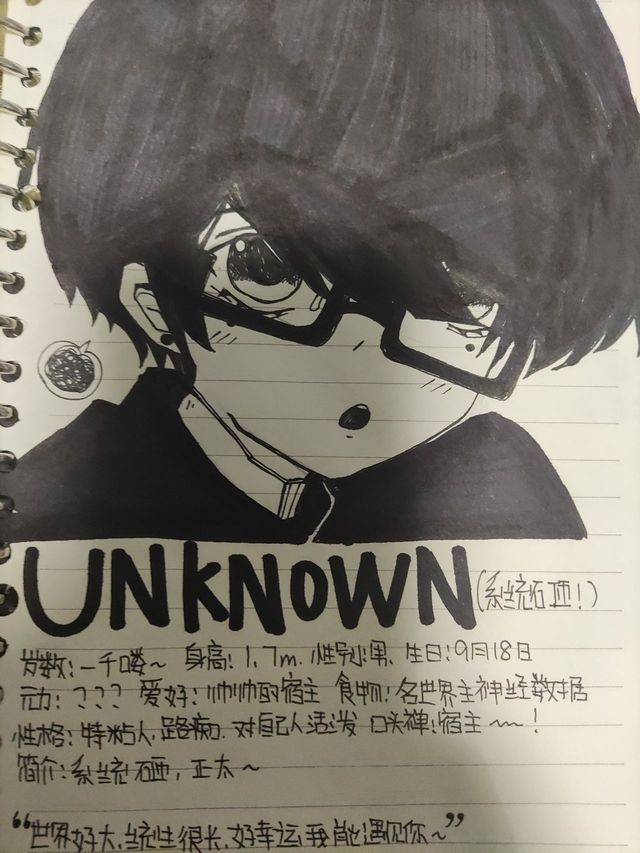 UNKNOWN(系统石西!)
岁数:一千喽~ 身高:1.7m. 性别:男. 生日:9月18日
元力:??? 爱好:帅帅的宿主 食物:各世界主神经数据
性格:特粘人.路痴.对自己人活泼 口头禅:宿主~~!
简介:系统石西,正太~
“世界好大,统生很长,好幸运,我能遇见你~”